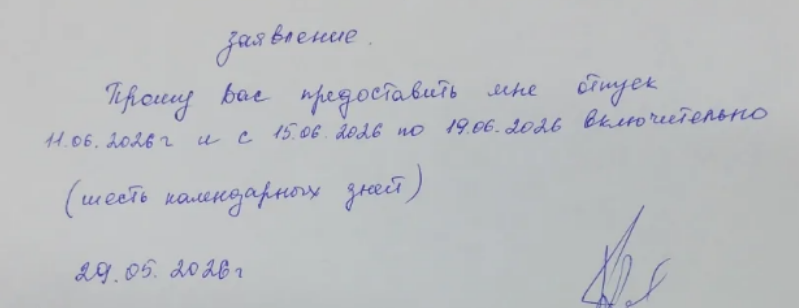 заявление.
Прошу Вас предоставить мне отпуск
11.06.2026г и с 15.06.2026 по 19.06.2026 включительно
(шесть календарных дней)
29.05.2026г